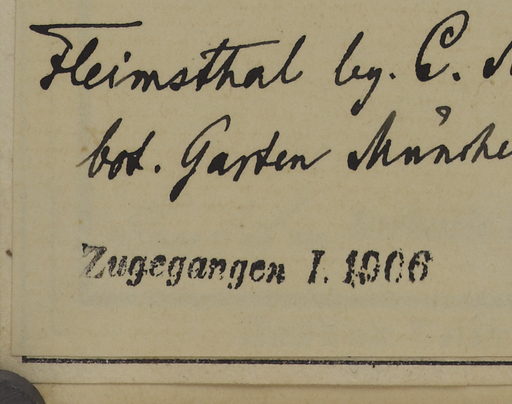 Fleimsthal leg. C.
bot. Garten Münche
Zugegangen I. 1906